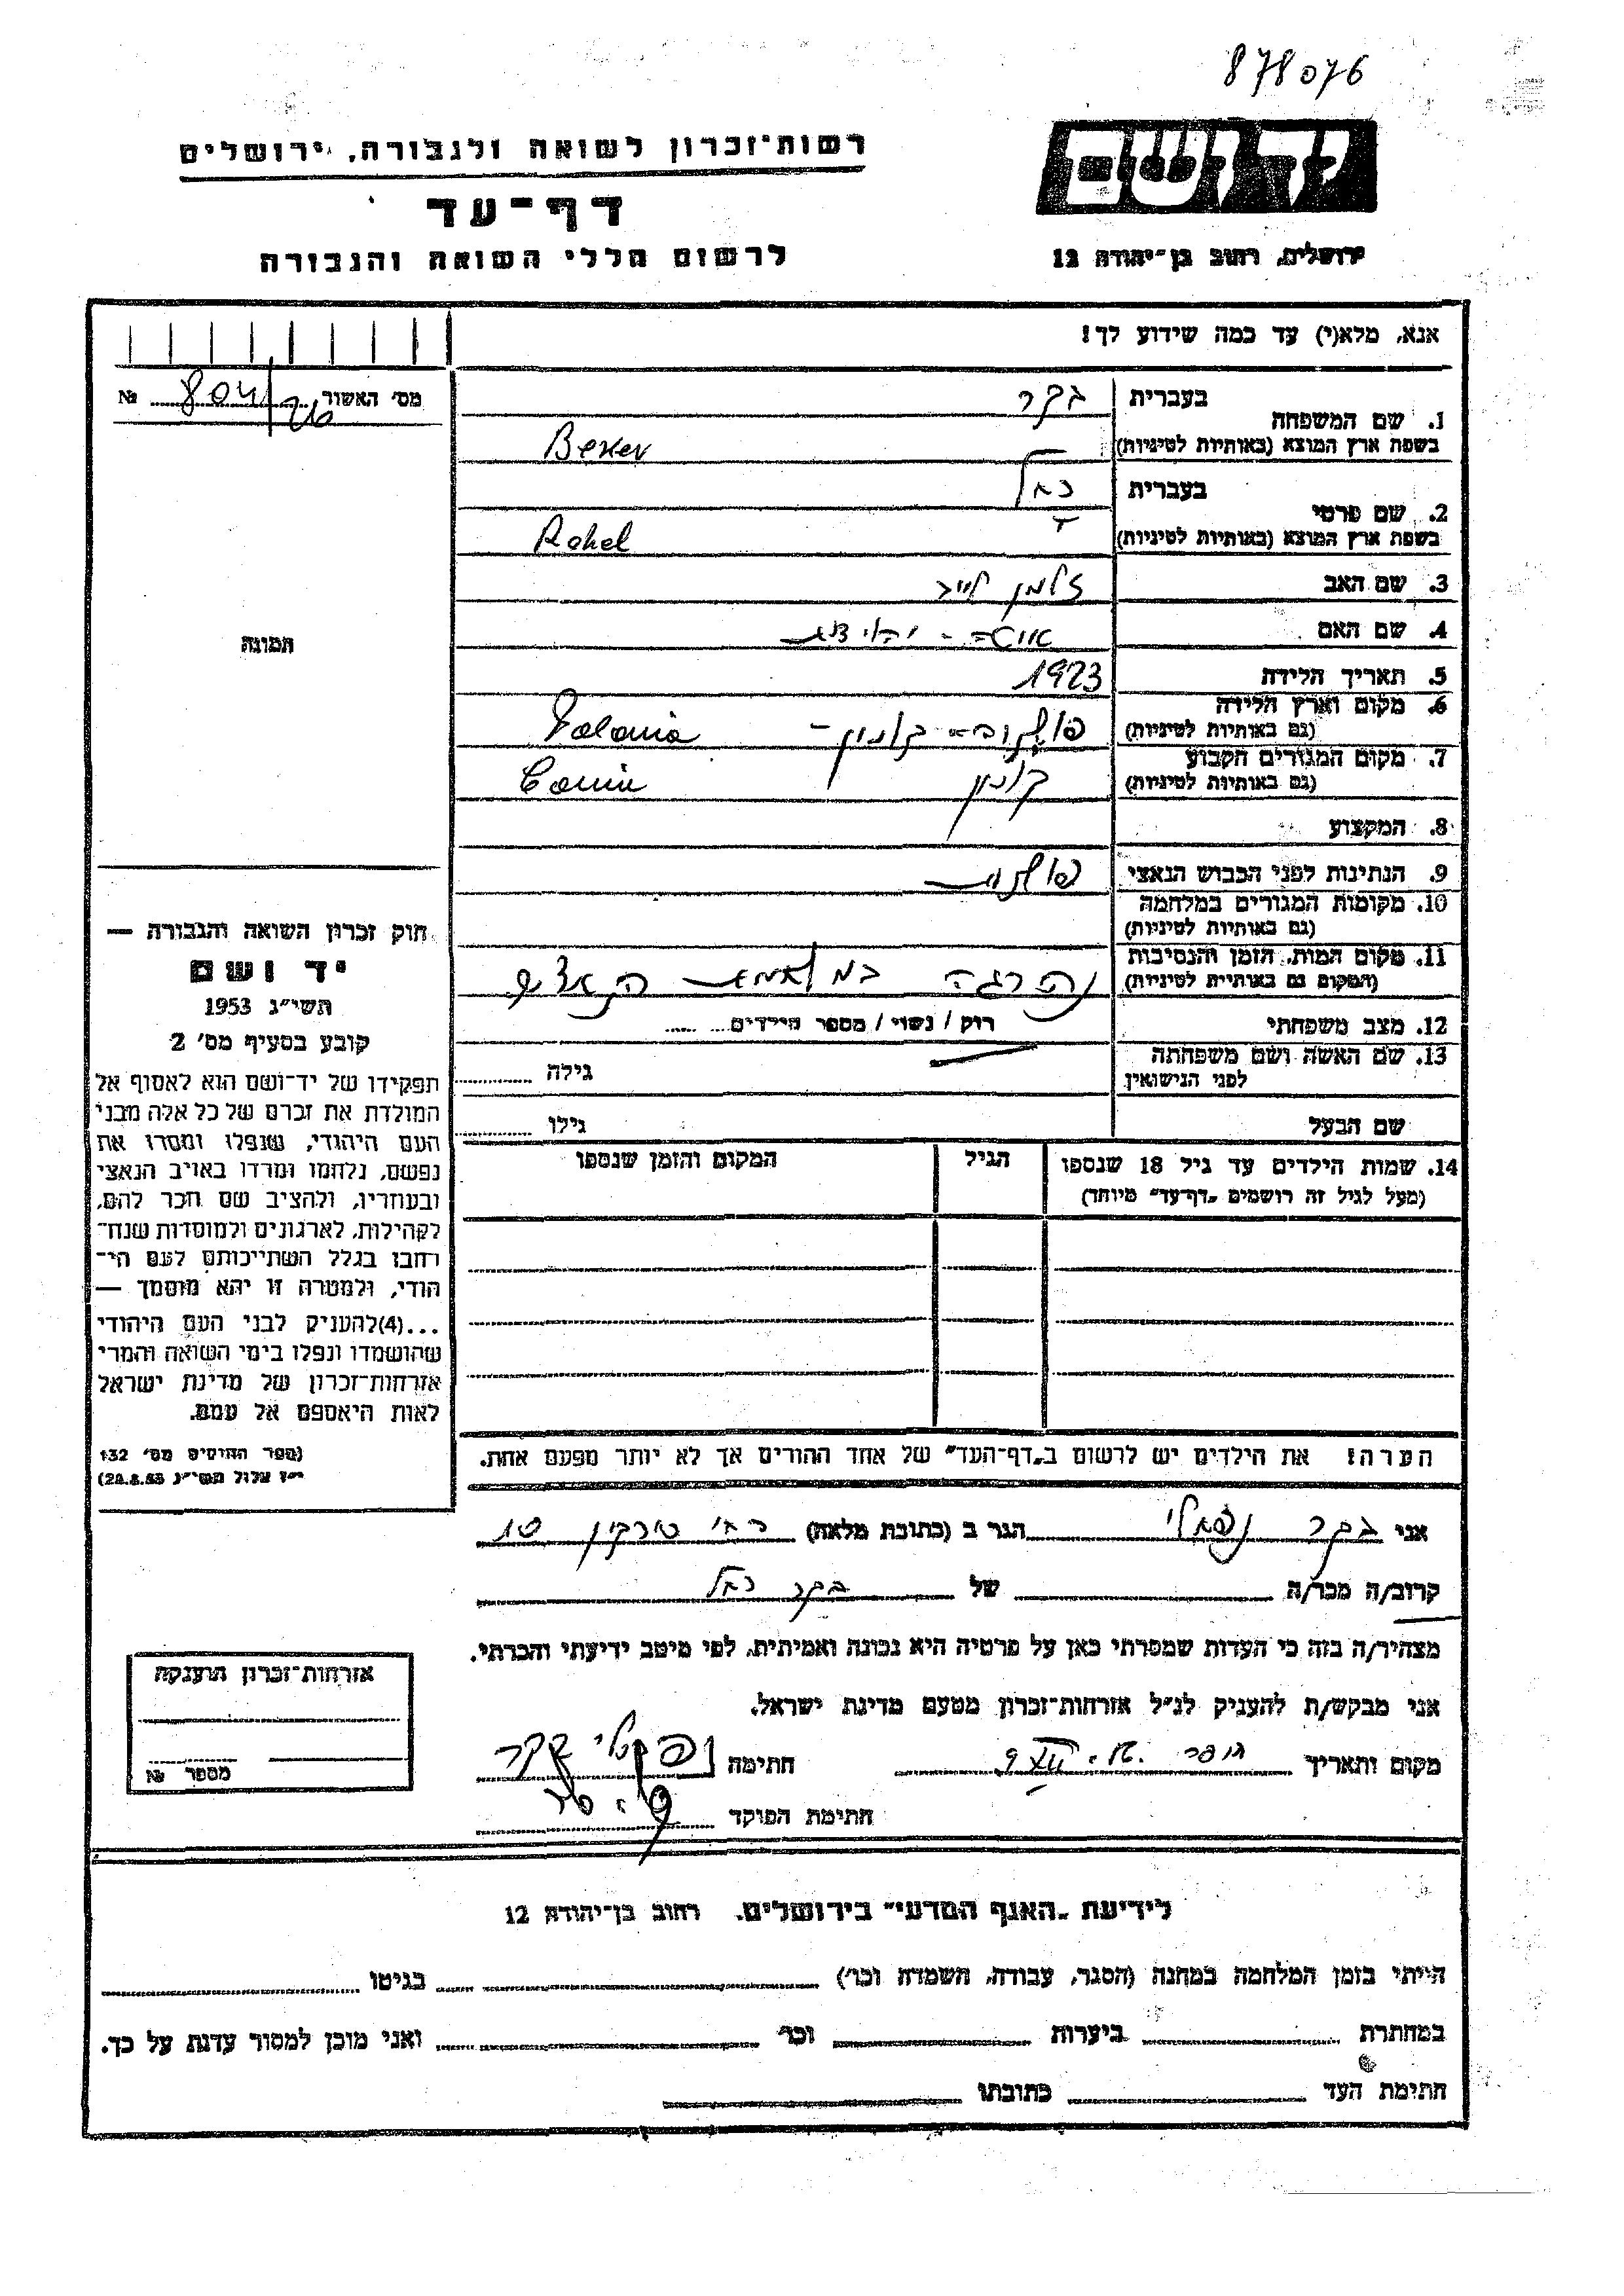 878076
רשות־זכרון לשואה ולגבורה, ירושלים
יד ושם
דף־עד
לרשום חללי השואה והגבורה
ירושלים, רחוב בן־יהודה 12
אנא, מלא(י) עד כמה שידוע לך!
מס׳ האשור 804 №
1. שם המשפחה
בעברית בקר
בשפת ארץ המוצא (באותיות לטיניות) Beker
2. שם פרטי
בעברית רחל
בשפת ארץ המוצא (באותיות לטיניות) Rahel
3. שם האב זלמן לייב
4. שם האם
5. תאריך הלידה 1923
6. מקום וארץ הלידה
(גם באותיות לטיניות) קונין - Polania
7. מקום המגורים הקבוע
(גם באותיות לטיניות) קונין Conin
8. המקצוע
9. הנתינות לפני הכבוש הנאצי פולנית
10. מקומות המגורים במלחמה
(גם באותיות לטיניות)
11. מקום המות, הזמן והנסיבות
(המקום גם באותיות לטיניות) נהרגה במלחמת הנאצים
12. מצב משפחתי רוק / נשוי / מספר הילדים
13. שם האשה ושם משפחתה
לפני הנישואין גילה
שם הבעל גילו
14. שמות הילדים עד גיל 18 שנספו הגיל המקום והזמן שנספו
(מעל לגיל זה רושמים „דף־עד״ מיוחד)
הערה! את הילדים יש לרשום ב„דף־העד״ של אחד ההורים אך לא יותר מפעם אחת.
תמונה
חוק זכרון השואה והגבורה —
יד ושם
תשי״ג 1953
קובע בסעיף מס׳ 2
תפקידו של יד־ושם הוא לאסוף אל
המולדת את זכרם של כל אלה מבני
העם היהודי, שנפלו ומסרו את
נפשם, נלחמו ומרדו באויב הנאצי
ובעוזריו, ולהציב שם וזכר להם,
לקהילות, לארגונים ולמוסדות שנח־
רחבו בגלל השתייכותם לעם הי־
הודי, ולמטרה זו יהא מוסמך —
...(4)להעניק לבני העם היהודי
שהושמדו ונפלו בימי השואה והמרי
אזרחות־זכרון של מדינת ישראל
לאות היאספם אל עמם.
(ספר החוקים מס׳ 132
י״ז אלול תשי״ג 28.8.53)
אני בקר נפתלי הגר ב (כתובת מלאה)
קרוב/ה מכר/ה של בקר רחל
מצהיר/ה בזה כי העדות שמסרתי כאן על פרטיה היא נכונה ואמיתית, לפי מיטב ידיעתי והכרתי.
אני מבקש/ת להעניק לנ״ל אזרחות־זכרון מטעם מדינת ישראל.
מקום ותאריך חתימה נפתלי בקר
חתימת הפוקד
אזרחות־זכרון הוענקה
מספר №
לידיעת „האגף המדעי״ בירושלים, רחוב בן־יהודה 12
הייתי בזמן המלחמה במחנה (הסגר, עבודה, השמדה וכר) בגיטו
במחתרת ביערות וכר ואני מוכן למסור עדות על כך.
חתימת העד כתובתו